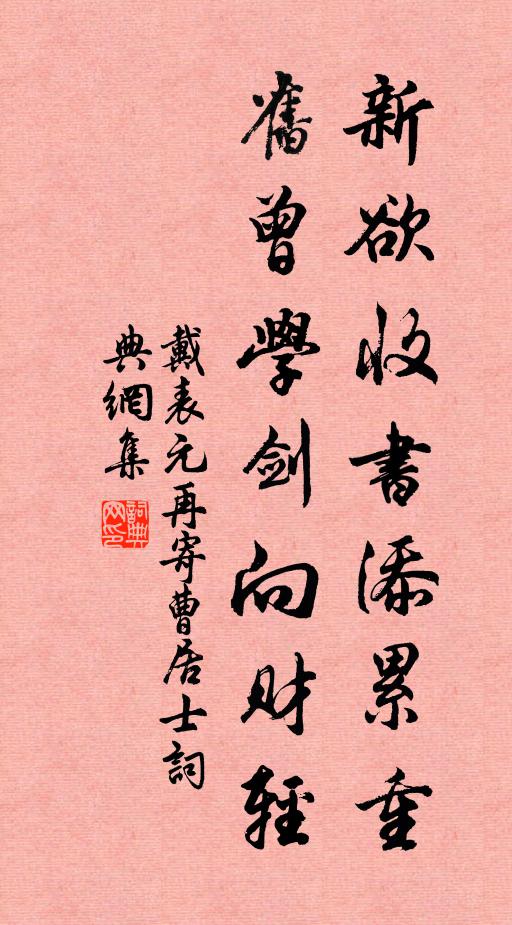 新欲收書添累重
舊曾學劍向財輕
戴表元再寄曹居士詞
典網集
詞典網印